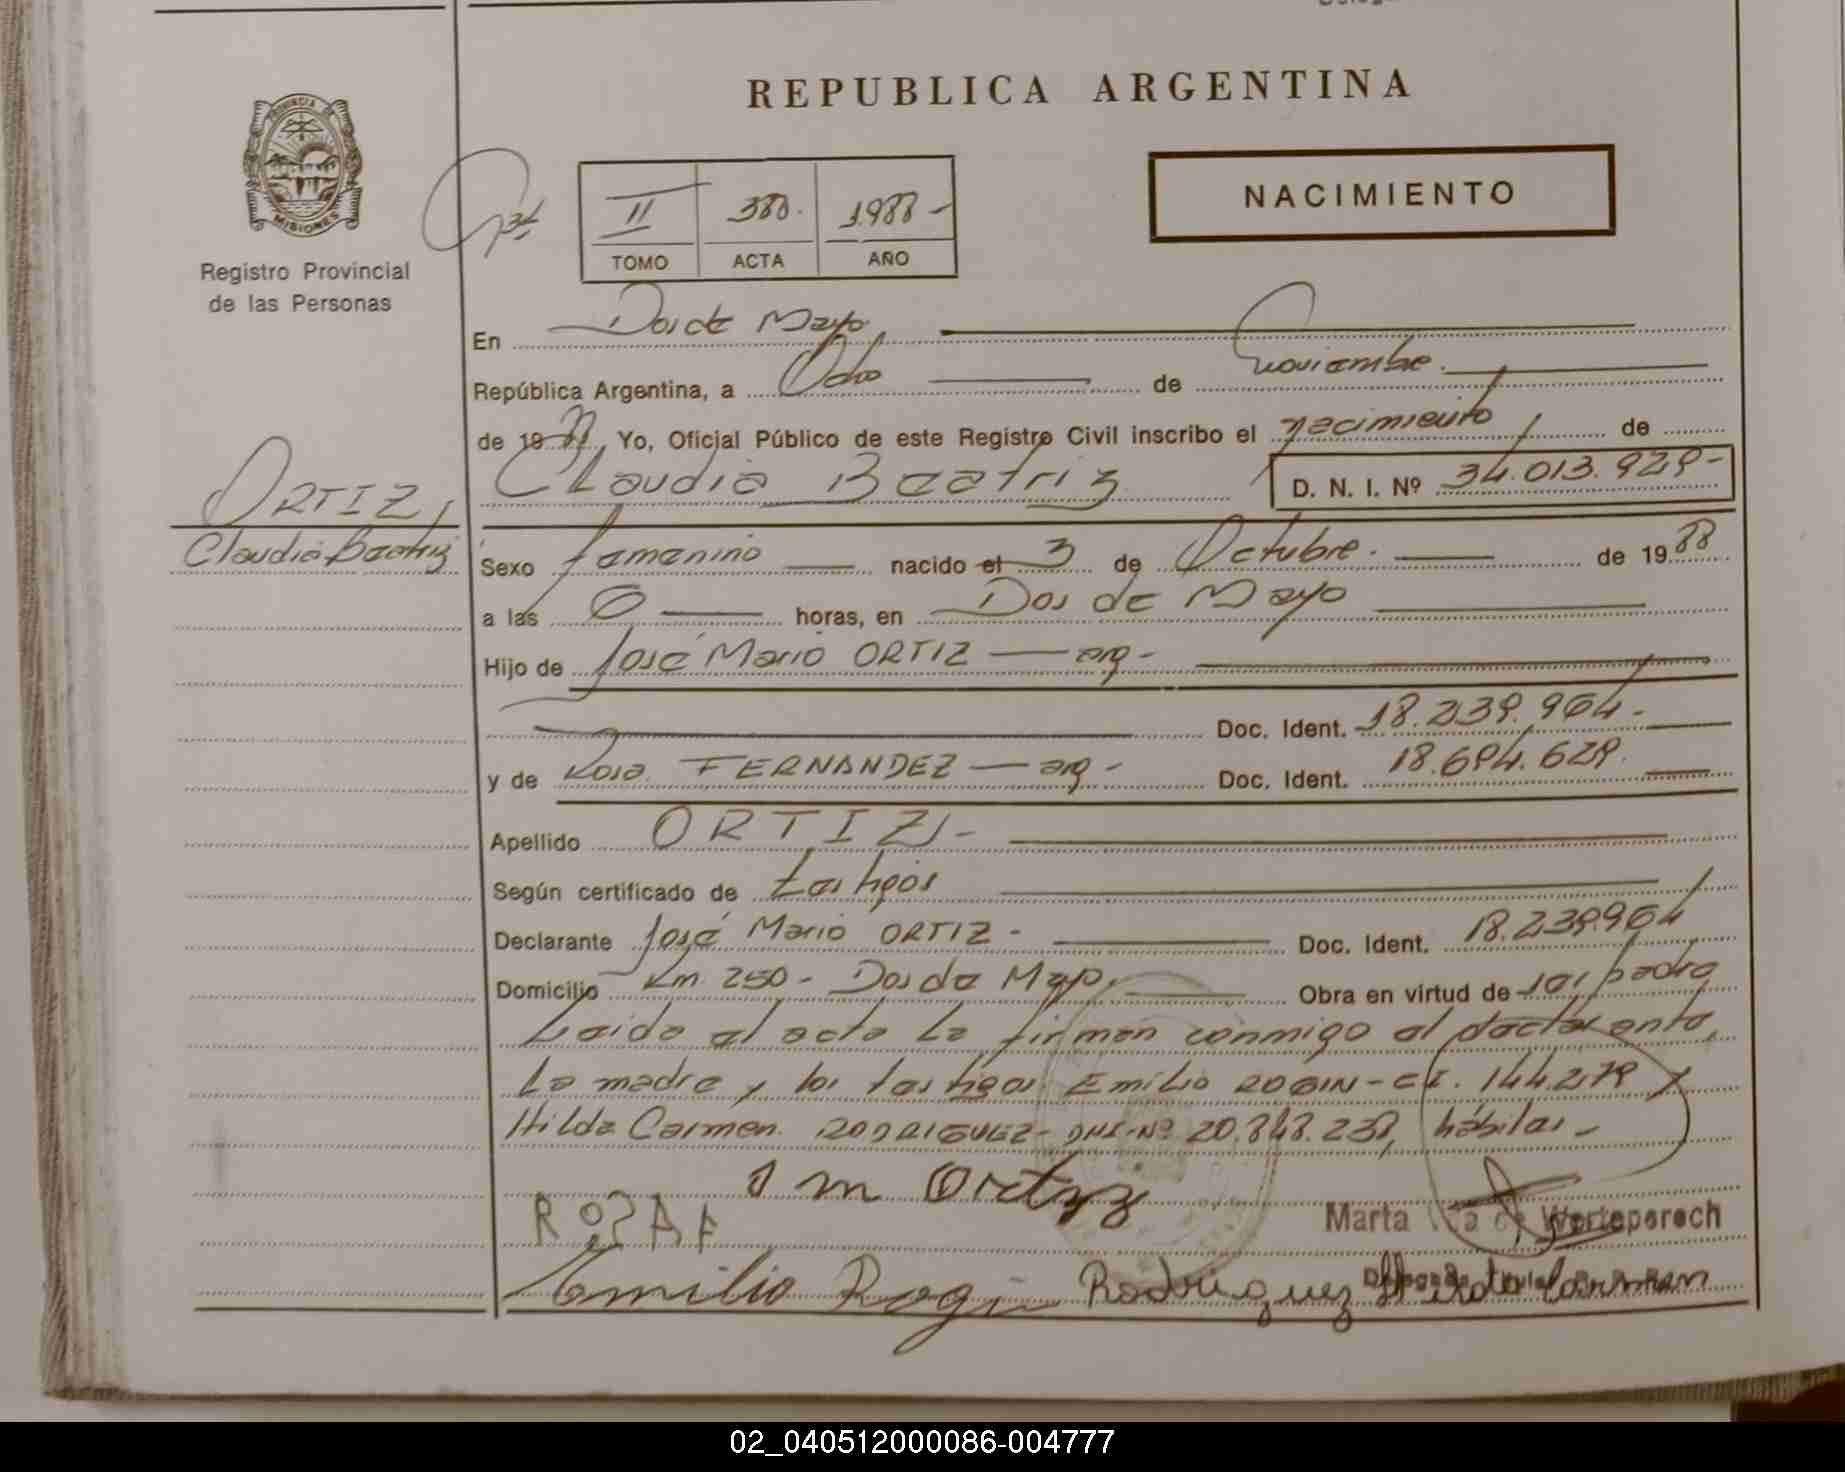 REPUBLICA ARGENTINA
PROVINCIA DE
MISIONES
Registro Provincial
de las Personas
NACIMIENTO
II 388. 1.988-
TOMO ACTA AÑO
En Dos de Mayo
República Argentina, a Ocho de Noviembre.
de 1988, Yo, Oficial Público de este Registro Civil inscribo el nacimiento de
Claudia Beatriz D. N. I. Nº 34.013.929-
ORTIZ,
Claudia Beatriz
Sexo femenino nacido el 3 de Octubre. de 1988
a las 0 horas, en Dos de Mayo
Hijo de José Mario ORTIZ — arg-
Doc. Ident. 18.239.964-
y de Rosa FERNANDEZ — arg- Doc. Ident. 18.694.629.
Apellido ORTIZ,-
Según certificado de testigos
Declarante José Mario ORTIZ- Doc. Ident. 18.239.964
Domicilio Km. 250- Dos de Mayo, Obra en virtud de ser padre
Leida el acta la firman conmigo el declarante,
la madre y los testigos Emilio ROGIN-CI. 144.279 y
Hilda Carmen RODRIGUEZ- DNI-Nº 20.848.238, hábiles-
J m Ortiz
ROSA F
Marta de Werteperoch
Emilio Rogin Rodriguez Hilda Carmen
02_040512000086-004777